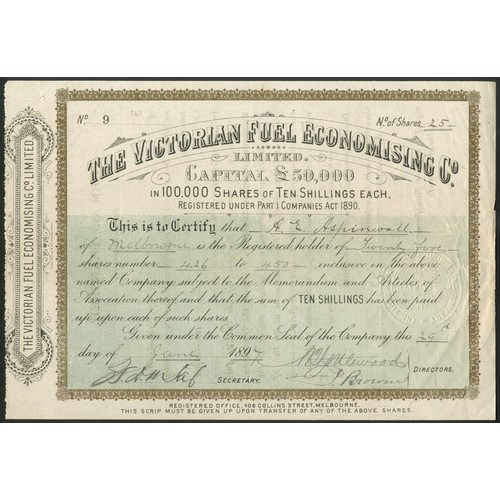 THE VICTORIAN FUEL ECONOMISING Co. LIMITED.
No 9
No. of Shares 25
THE VICTORIAN FUEL ECONOMISING Co.
LIMITED.
CAPITAL £50,000
IN 100,000 SHARES OF TEN SHILLINGS EACH.
REGISTERED UNDER PART I COMPANIES ACT 1890.
This is to Certify that A. E. Aspinwall
of Melbourne is the Registered holder of Twenty five
shares number 426 to 450 inclusive in the above
named Company subject to the Memorandum and Articles of
Association thereof and that the sum of TEN SHILLINGS has been paid
up upon each of such shares.
Given under the Common Seal of the Company this 29
day of June 1897
SECRETARY.
Brown
DIRECTORS.
REGISTERED OFFICE, 408 COLLINS STREET, MELBOURNE.
THIS SCRIP MUST BE GIVEN UP UPON TRANSFER OF ANY OF THE ABOVE SHARES.